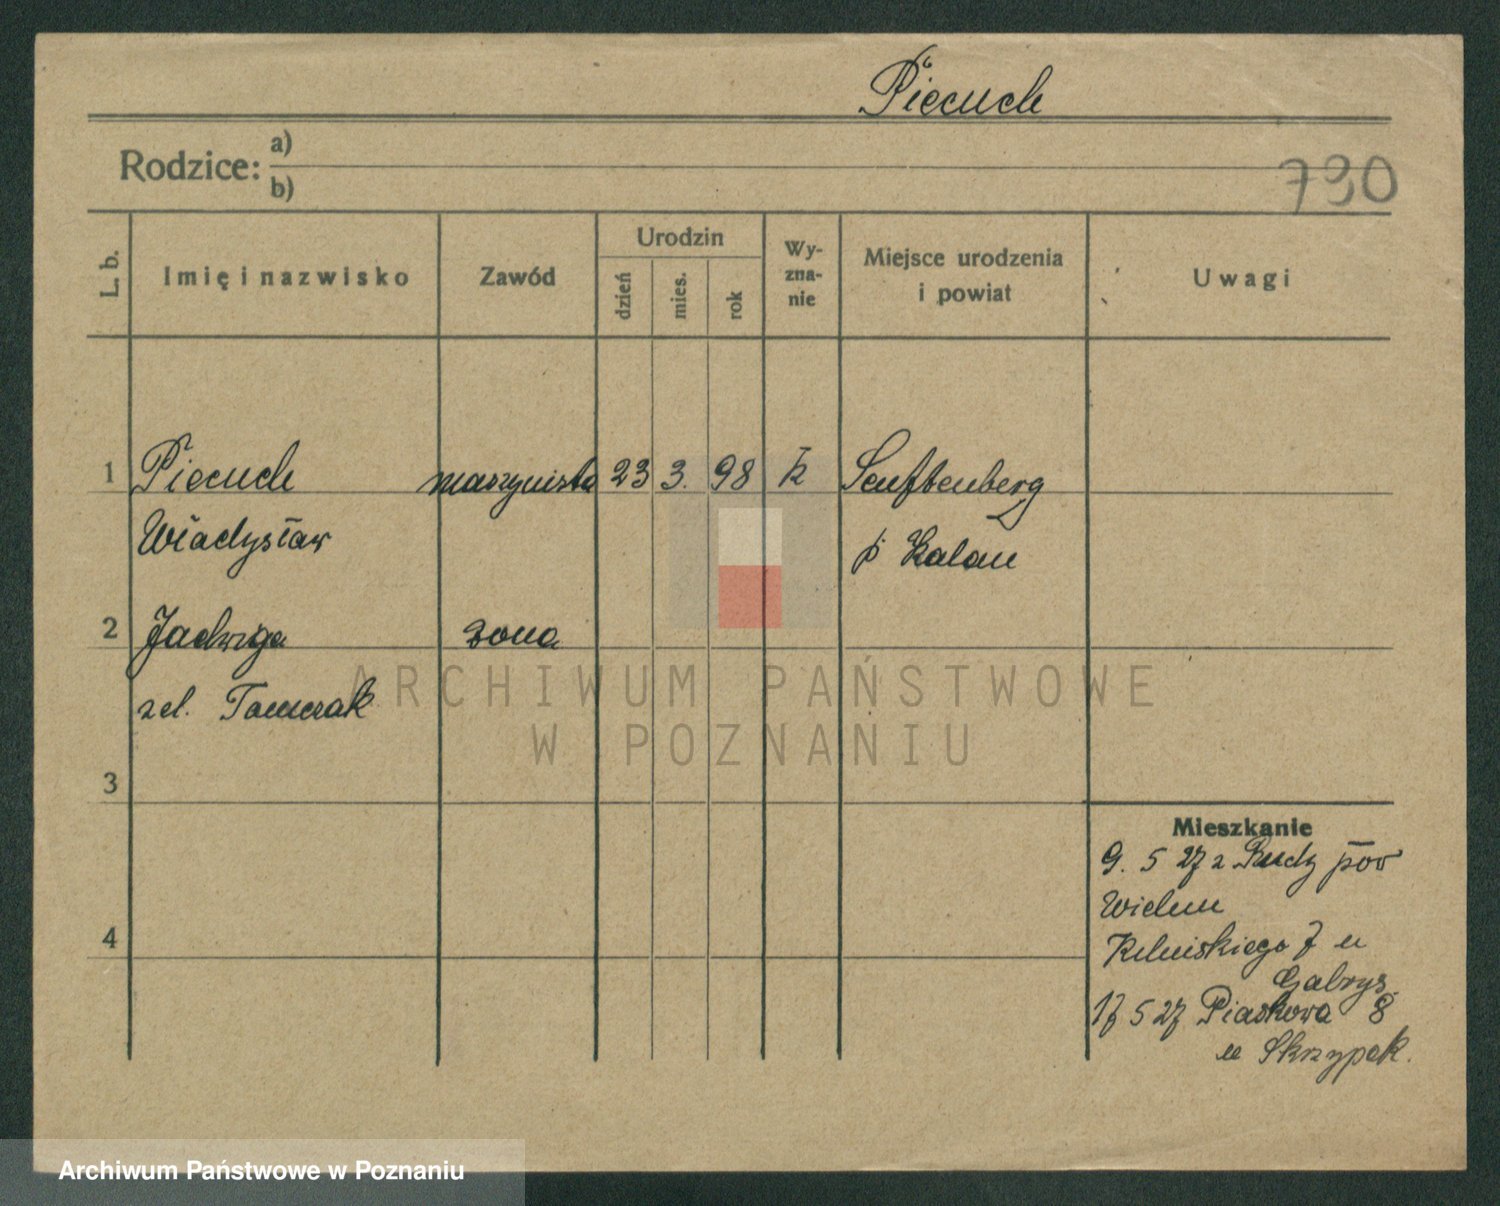 Piecuch
Rodzice: a)
b)
790
L. b.
Imię i nazwisko
Zawód
Urodzin
dzień
mies.
rok
Wy-
zna-
nie
Miejsce urodzenia
i powiat
Uwagi
1 Piecuch maszynista 23 3. 98 k Senftenberg
Władysław p Kalau
2 Jadwiga żona
zd. Tomczak
3
4
Mieszkanie
9. 5 27 z Rudy pow
Wieluń
Kilińskiego 7 u
Gabryś
17 5 27 Piaskowa 8
u Skrzypek.
ARCHIWUM PAŃSTWOWE
W POZNANIU
Archiwum Państwowe w Poznaniu